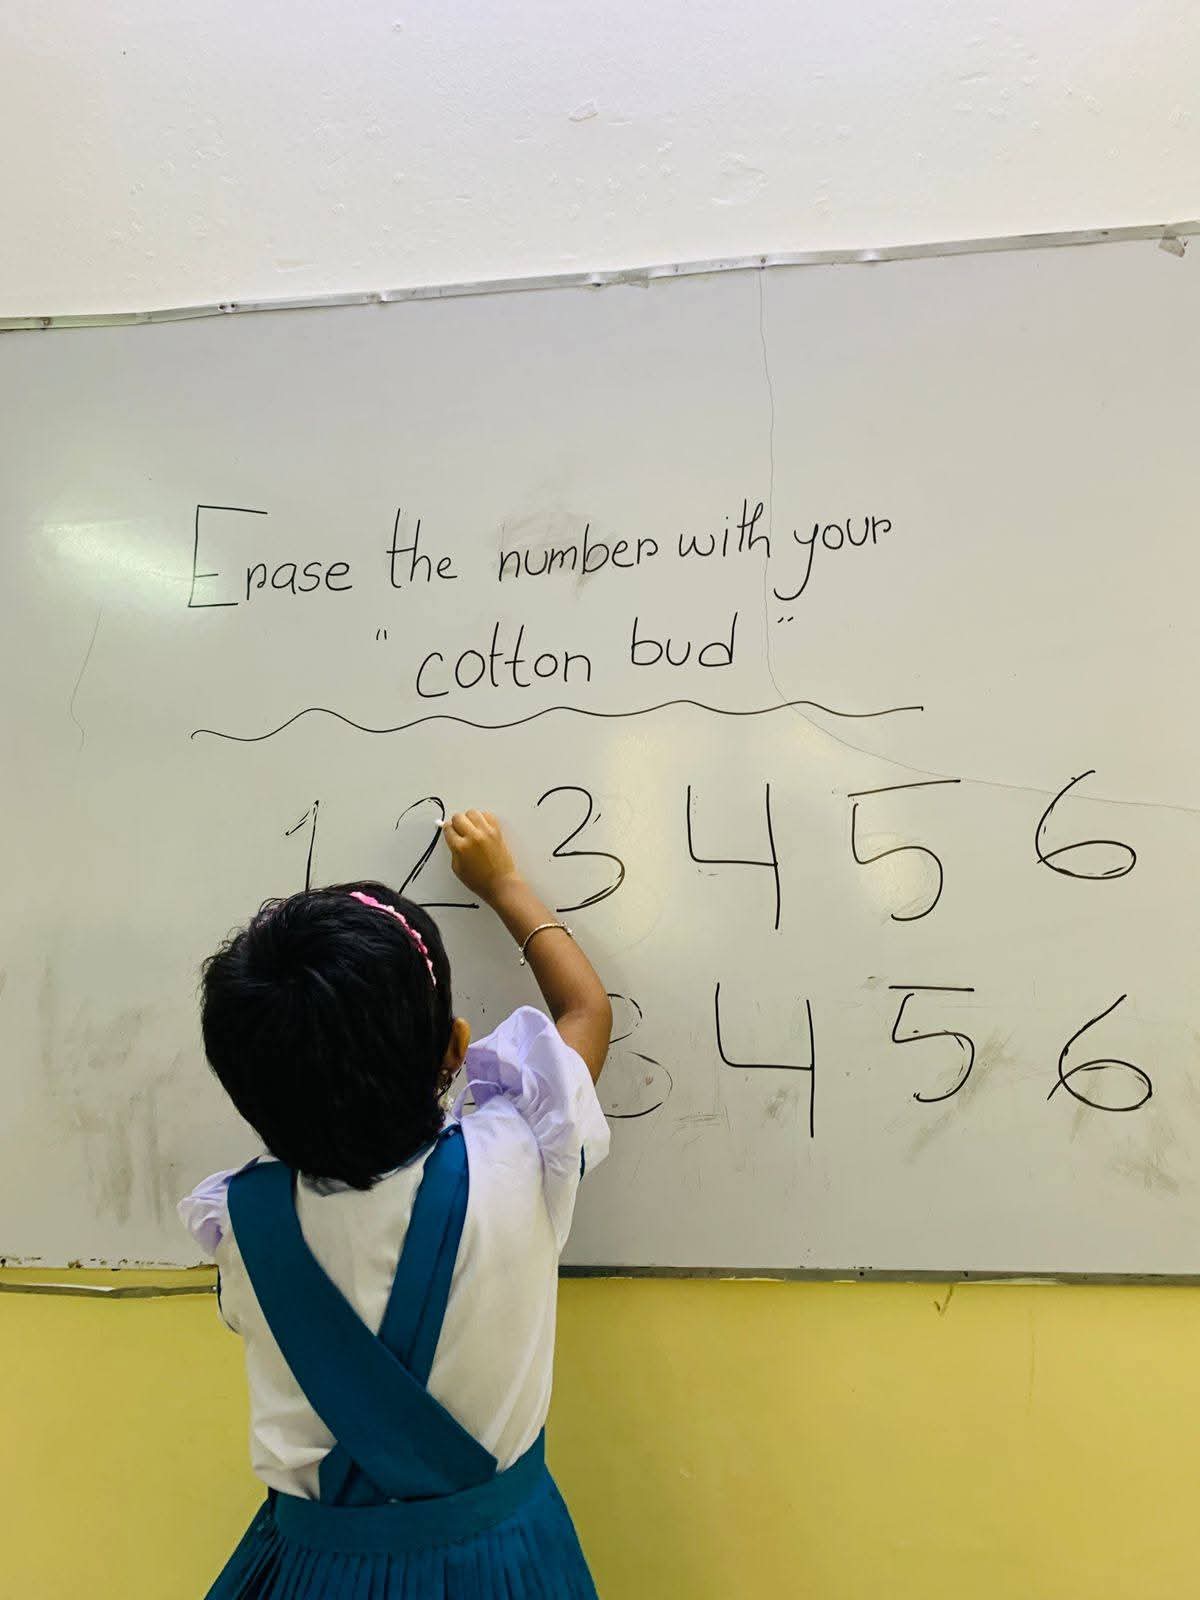 Erase the number with your
" cotton bud "
1 2 3 4 5 6
3 4 5 6